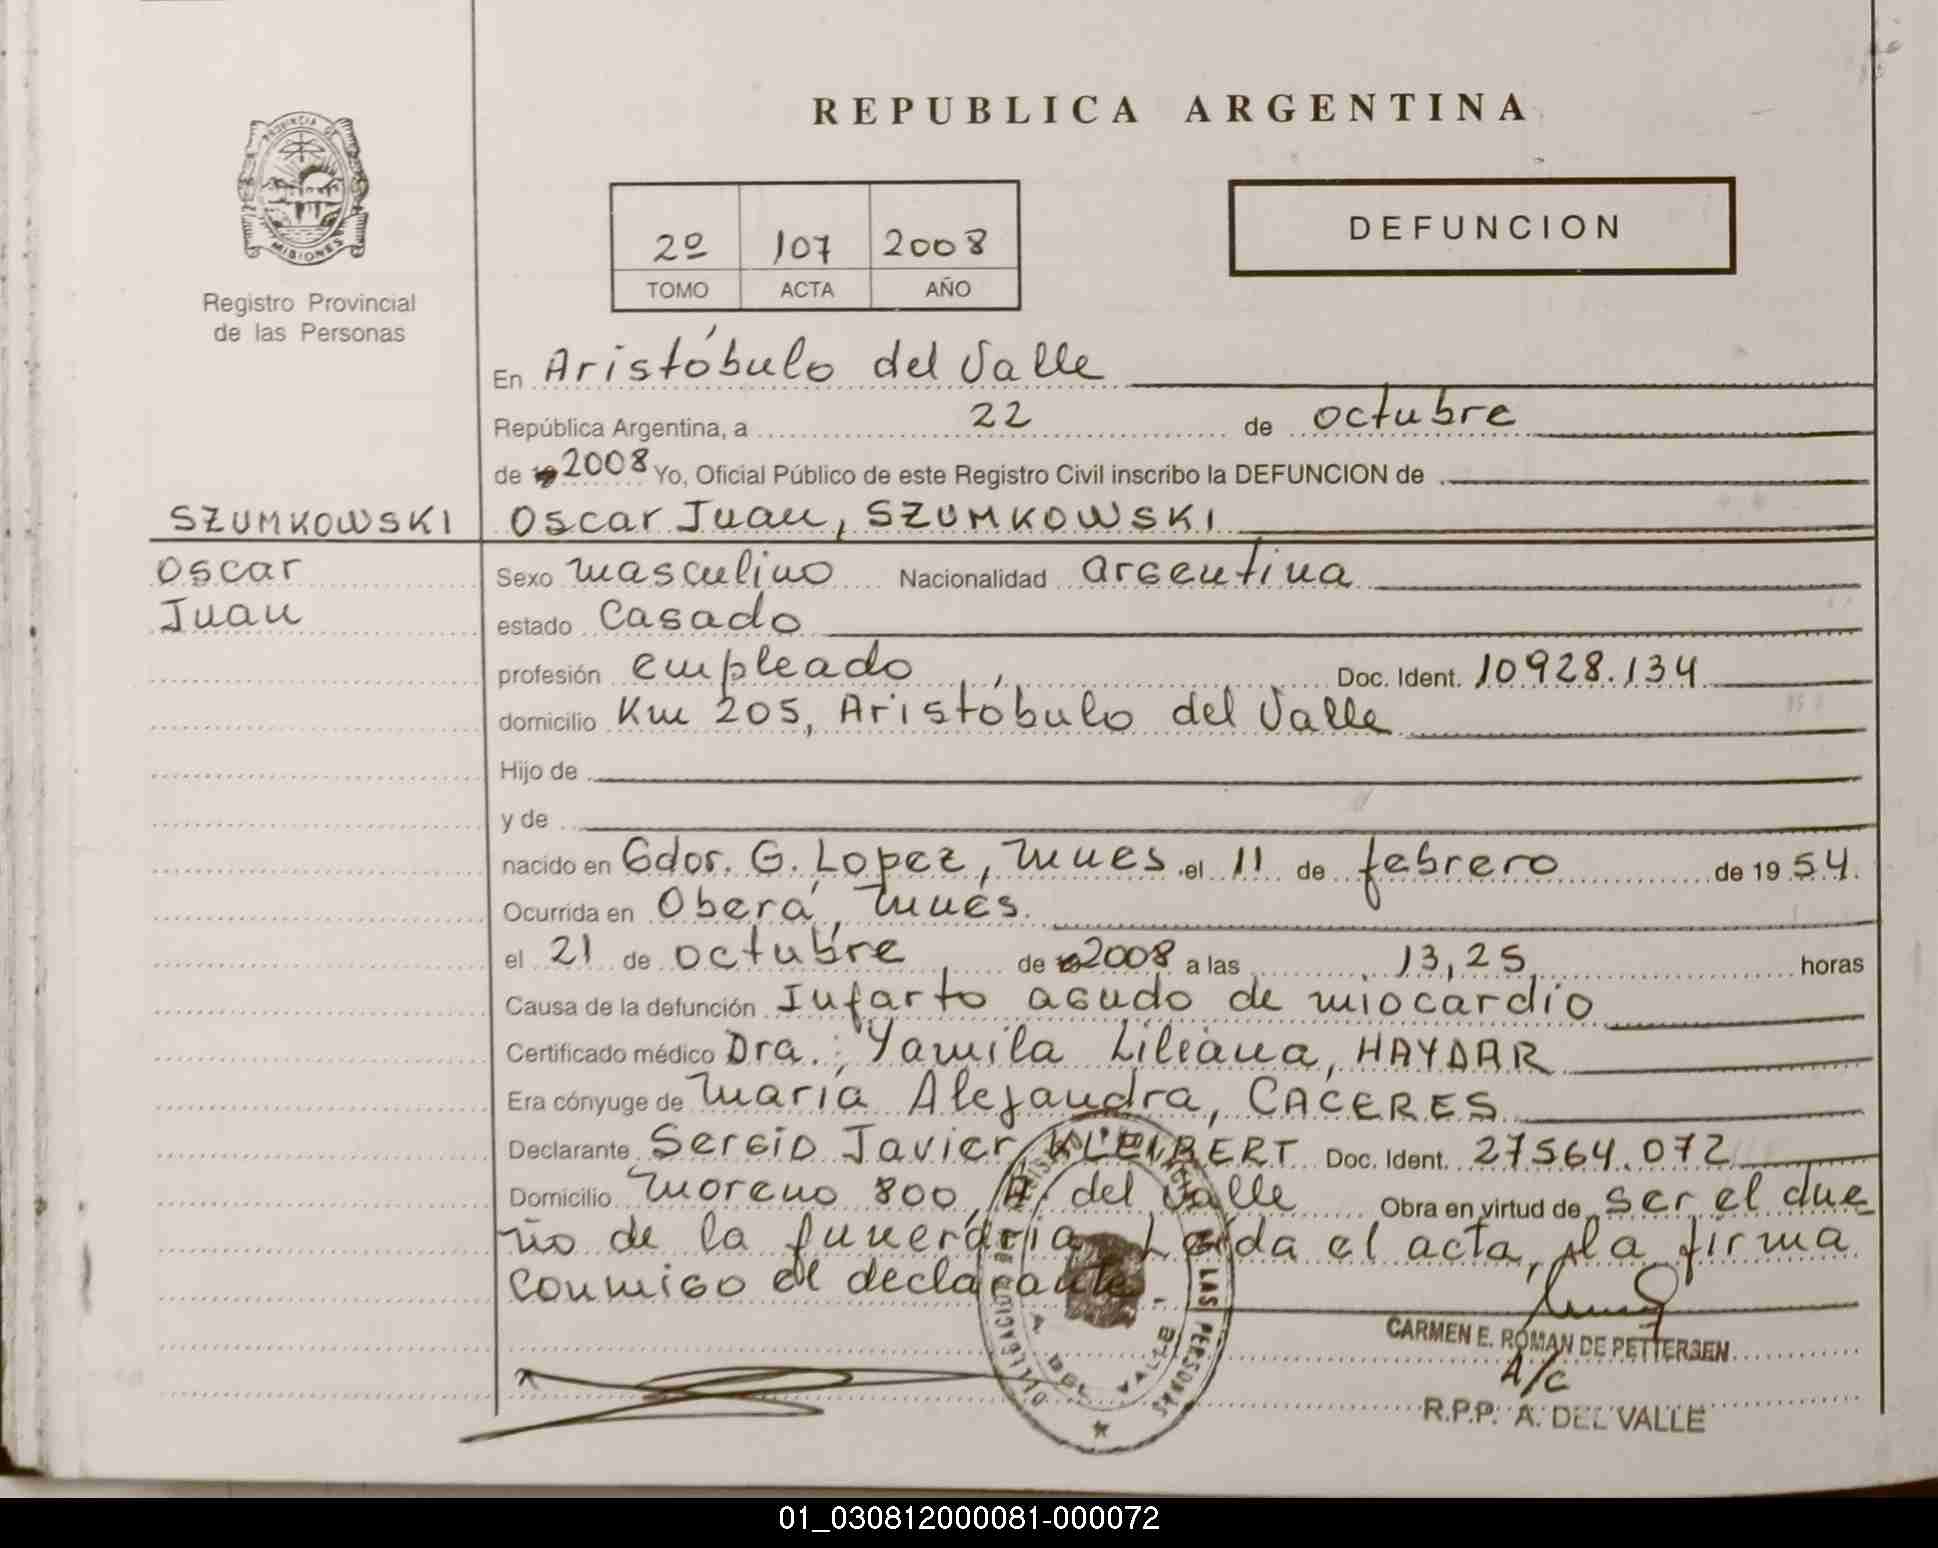 REPUBLICA ARGENTINA
PROVINCIA DE
MISIONES
Registro Provincial
de las Personas
2º 107 2008
TOMO ACTA AÑO
DEFUNCION
En Aristóbulo del Valle
República Argentina, a 22 de octubre
de 2008 Yo, Oficial Público de este Registro Civil inscribo la DEFUNCION de
SZUMKOWSKI
Oscar
Juan
Oscar Juan, SZUMKOWSKI
Sexo masculino Nacionalidad argentina
estado casado
profesión empleado Doc. Ident. 10928.134
domicilio Km 205, Aristóbulo del Valle
Hijo de
y de
nacido en Gdor. G. Lopez, Mnes el 11 de febrero de 1954.
Ocurrida en Oberá, Mnes.
el 21 de octubre de 2008 a las 13,25 horas
Causa de la defunción Infarto agudo de miocardio
Certificado médico Dra. Yamila Liliana, HAYDAR
Era cónyuge de María Alejandra, CACERES
Declarante Sergio Javier KLEIBERT Doc. Ident. 27564.072
Domicilio Moreno 800, A. del Valle Obra en virtud de ser el due
ño de la funeraria. Leída el acta, la firma
conmigo el declarante.
DELEGACION
LAS PERSONAS
A. DEL VALLE
CARMEN E. ROMAN DE PETTERSEN
A/C
R.P.P. A. DEL VALLE
01_030812000081-000072